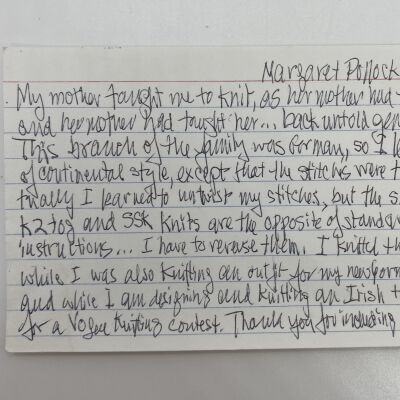 Margaret Pollock
My mother taught me to knit, as her mother had
and her mother had taught her... back untold gen
This branch of the family was German, so I l
of continental style, except that the stitches were t
finally I learned to untwist my stitches, but the s
K2tog and SSK knits are the opposite of standar
instructions... I have to reverse them. I knitted th
while I was also knitting an outfit for my newborn
and while I am designing and knitting an Irish t
for a Vogue Knitting contest. Thank you for including